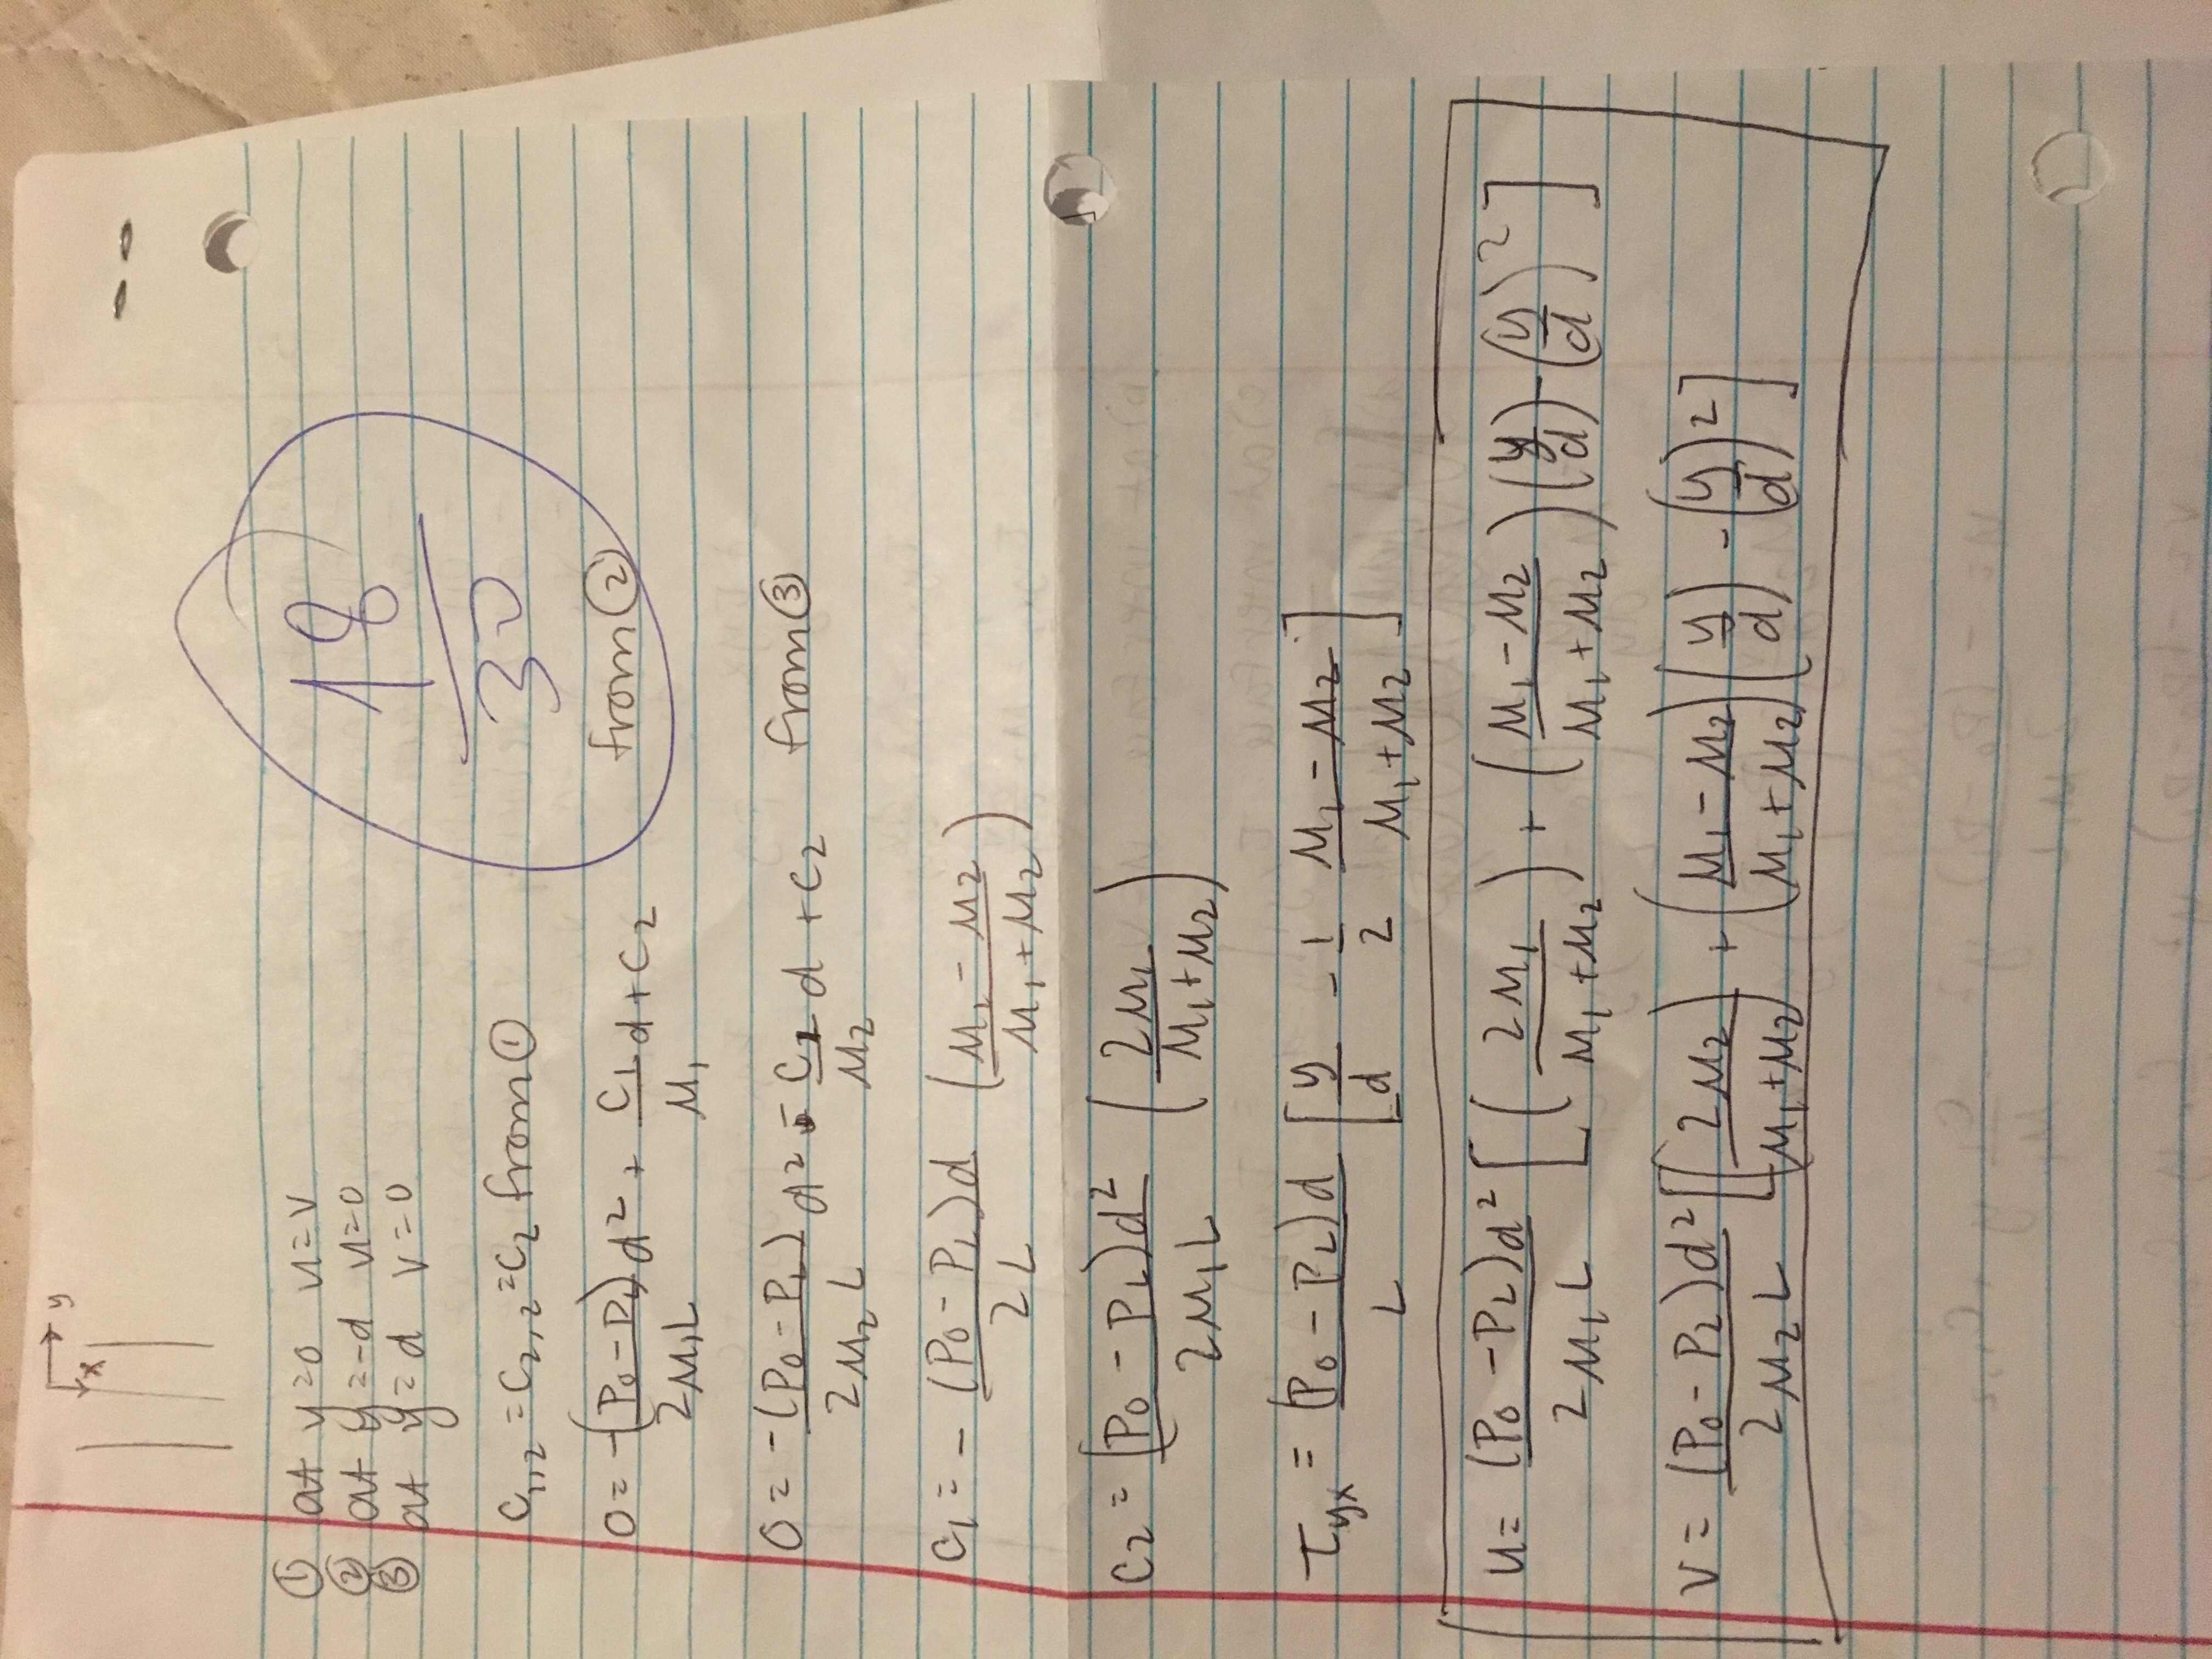 y
x
① at y=0 u=v
② at y=-d u=0
③ at y=d v=0
18/30
C₁,₂ = C₂,₂ = C₂ from ①
0 = -(P₀-P_L)/(2μ₁L) d² + C₁/μ₁ d + C₂ from ②
0 = -(P₀-P_L)/(2μ₂L) d² - C₁/μ₂ d + C₂ from ③
C₁ = - (P₀-P_L)d/(2L) ((μ₁-μ₂)/(μ₁+μ₂))
C₂ = (P₀-P_L)d²/(2μ₁L) (2μ₁/(μ₁+μ₂))
τ_yx = (P₀-P_L)d/L [y/d - 1/2 (μ₁-μ₂)/(μ₁+μ₂)]
u = (P₀-P_L)d²/(2μ₁L) [(2μ₁/(μ₁+μ₂)) + ((μ₁-μ₂)/(μ₁+μ₂))(y/d) - (y/d)²]
v = (P₀-P_L)d²/(2μ₂L) [(2μ₂/(μ₁+μ₂)) + ((μ₁-μ₂)/(μ₁+μ₂))(y/d) - (y/d)²]